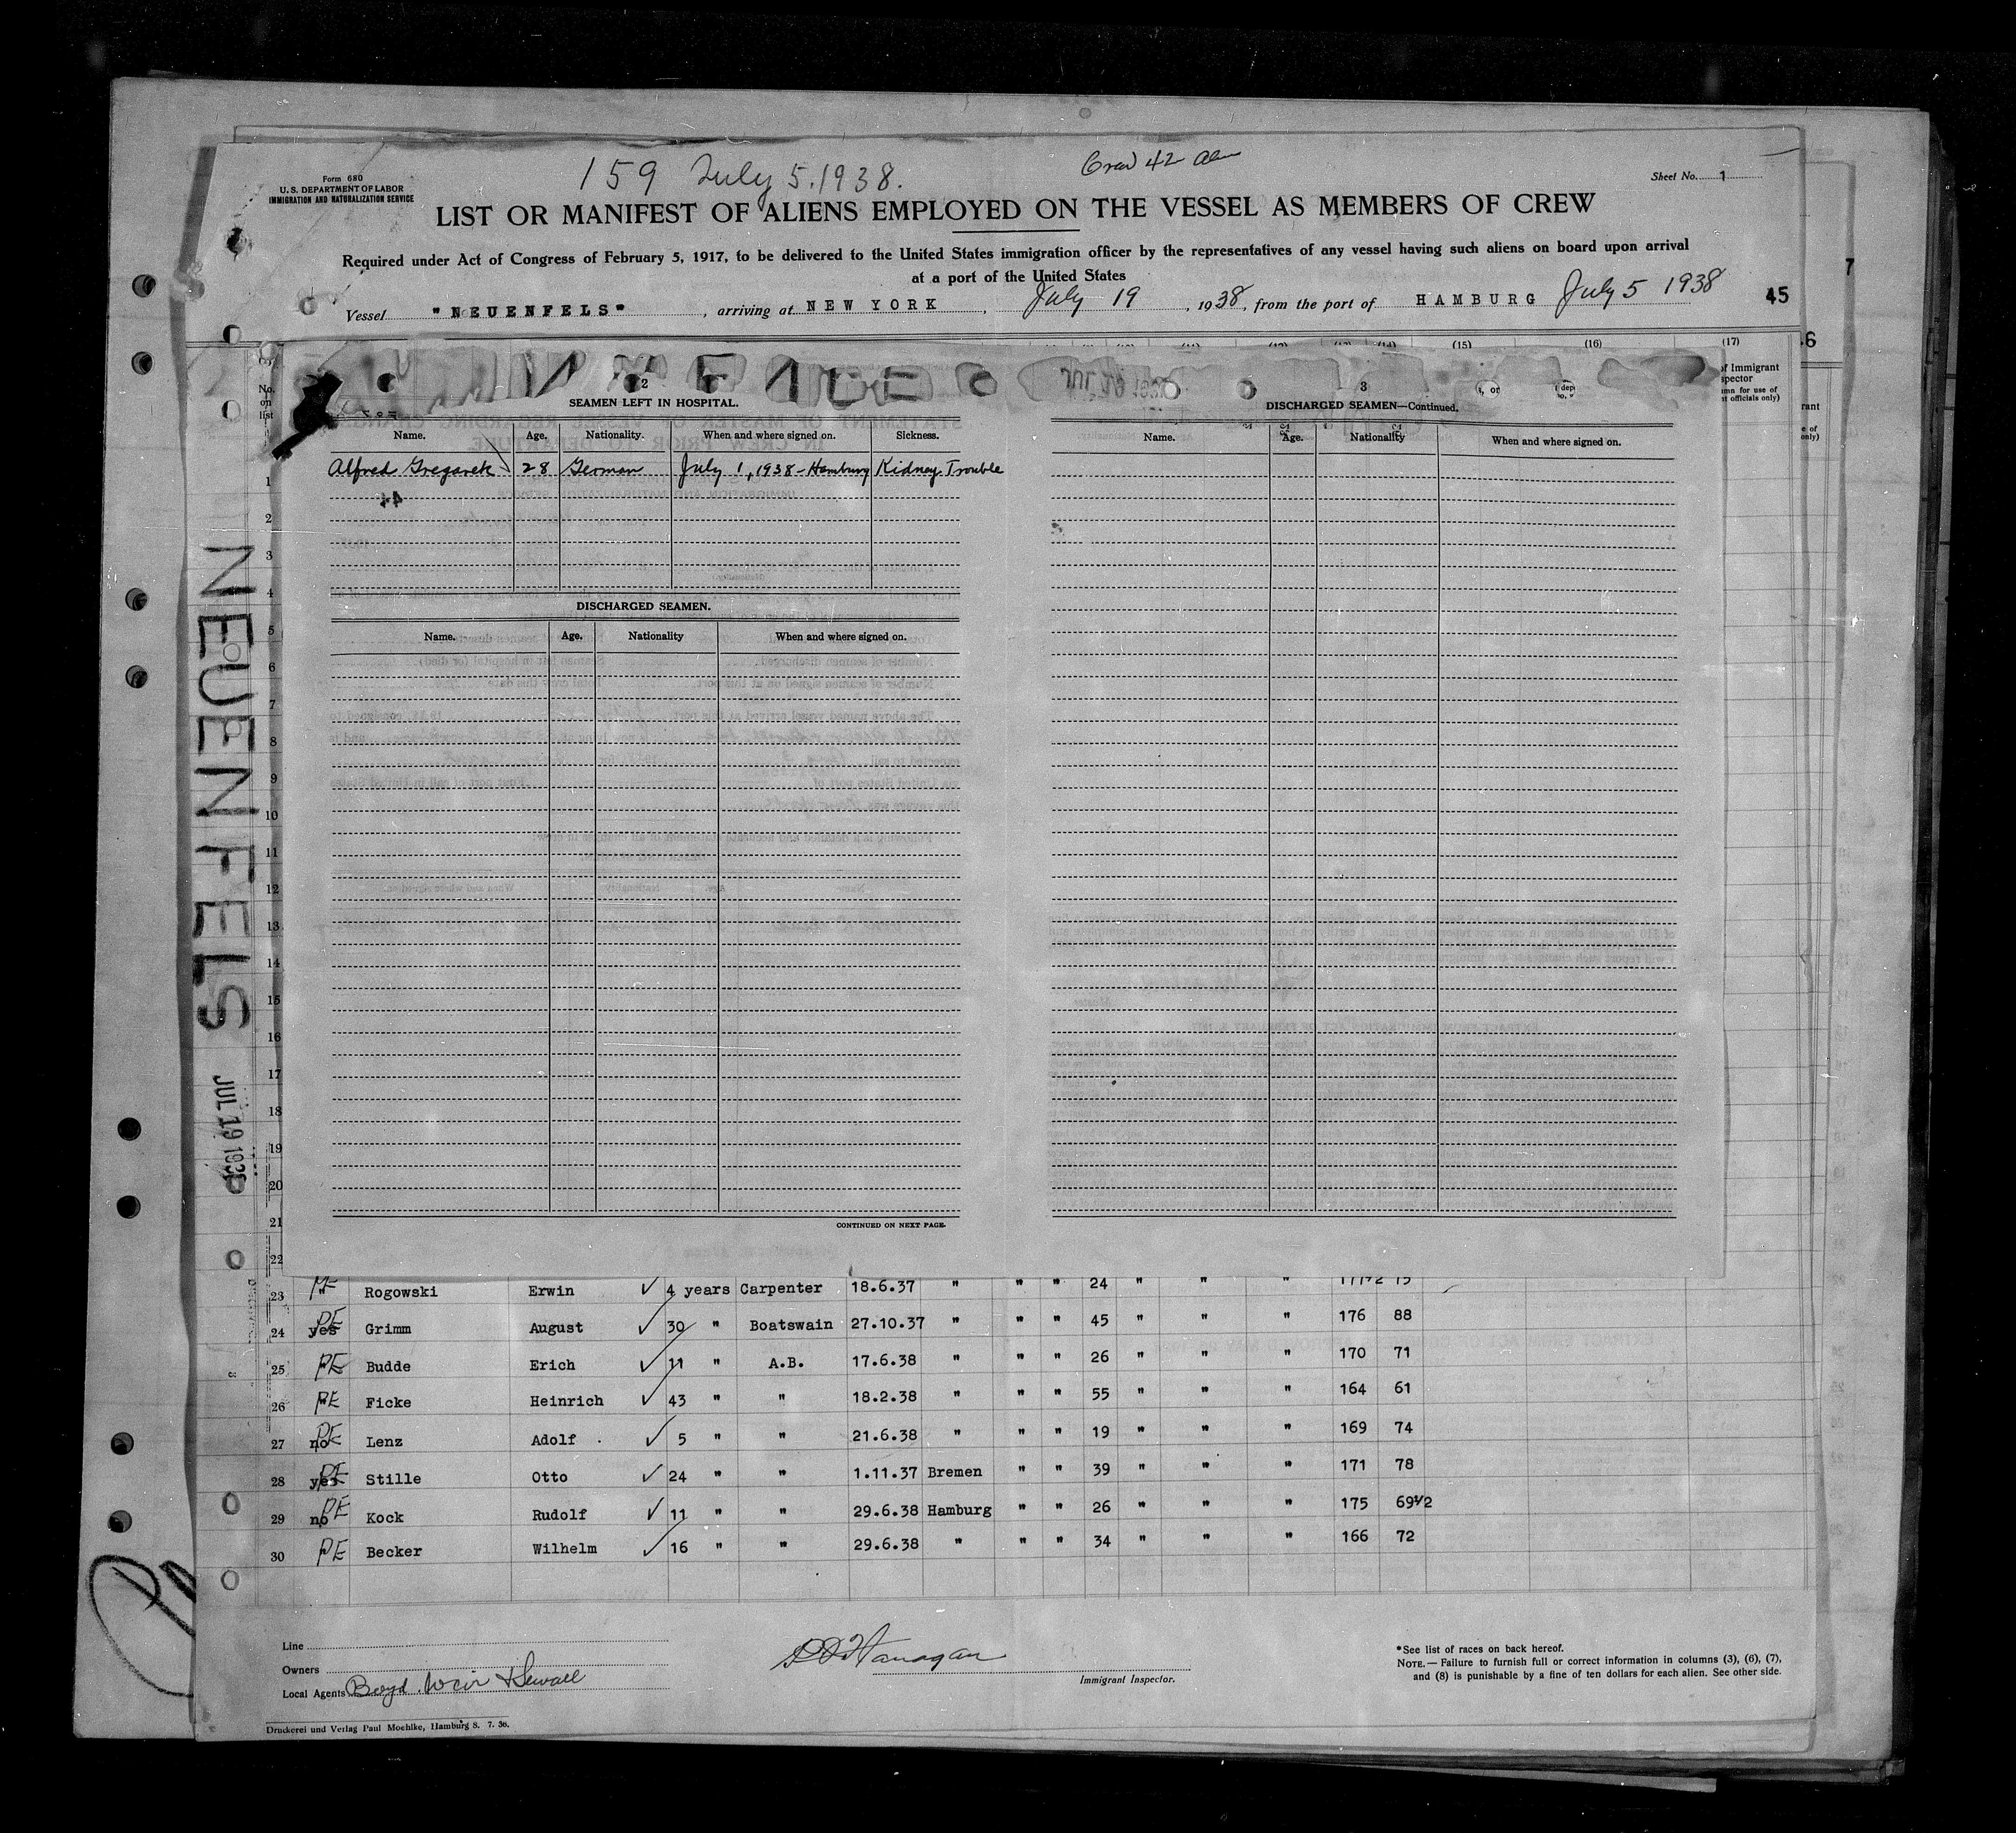 159 July 5, 1938.
Crew 42
Form 680
U. S. DEPARTMENT OF LABOR
IMMIGRATION AND NATURALIZATION SERVICE
Sheet No. 1
LIST OR MANIFEST OF ALIENS EMPLOYED ON THE VESSEL AS MEMBERS OF CREW
Required under Act of Congress of February 5, 1917, to be delivered to the United States immigration officer by the representatives of any vessel having such aliens on board upon arrival
at a port of the United States
Vessel "NEUENFELS", arriving at NEW YORK, July 19, 1938, from the port of HAMBURG July 5 1938
45
7
6
(15) (16) (17)
No. on list
of Immigrant
spector
mn for use of
t officials only)
2
SEAMEN LEFT IN HOSPITAL.
Name. Age. Nationality. When and where signed on. Sickness.
Alfred Gregarek 28 German July 1, 1938 - Hamburg Kidney Trouble
DISCHARGED SEAMEN.
Name. Age. Nationality When and where signed on.
CONTINUED ON NEXT PAGE.
3
DISCHARGED SEAMEN—Continued.
Name. Age. Nationality When and where signed on.
NEUENFELS
JUL 19 1938
1
2
3
4
5
6
7
8
9
10
11
12
13
14
15
16
17
18
19
20
21
22
23 " Rogowski Erwin ✓ 4 years Carpenter 18.6.37 " " " 24 " " " 177 1/2 75
24 yes PE Grimm August ✓ 30 " Boatswain 27.10.37 " " " 45 " " " 176 88
25 " PE Budde Erich ✓ 11 " A.B. 17.6.38 " " " 26 " " " 170 71
26 " PE Ficke Heinrich ✓ 43 " " 18.2.38 " " " 55 " " " 164 61
27 no PE Lenz Adolf ✓ 5 " " 21.6.38 " " " 19 " " " 169 74
28 yes PE Stille Otto ✓ 24 " " 1.11.37 Bremen " " 39 " " " 171 78
29 no PE Kock Rudolf ✓ 11 " " 29.6.38 Hamburg " " 26 " " " 175 69 1/2
30 PE Becker Wilhelm ✓ 16 " " 29.6.38 " " " 34 " " " 166 72
Line
Owners
Local Agents Boyd Weir & Sewall
Immigrant Inspector.
*See list of races on back hereof.
NOTE.—Failure to furnish full or correct information in columns (3), (6), (7),
and (8) is punishable by a fine of ten dollars for each alien. See other side.
Druckerei und Verlag Paul Moehlke, Hamburg 8. 7. 36.